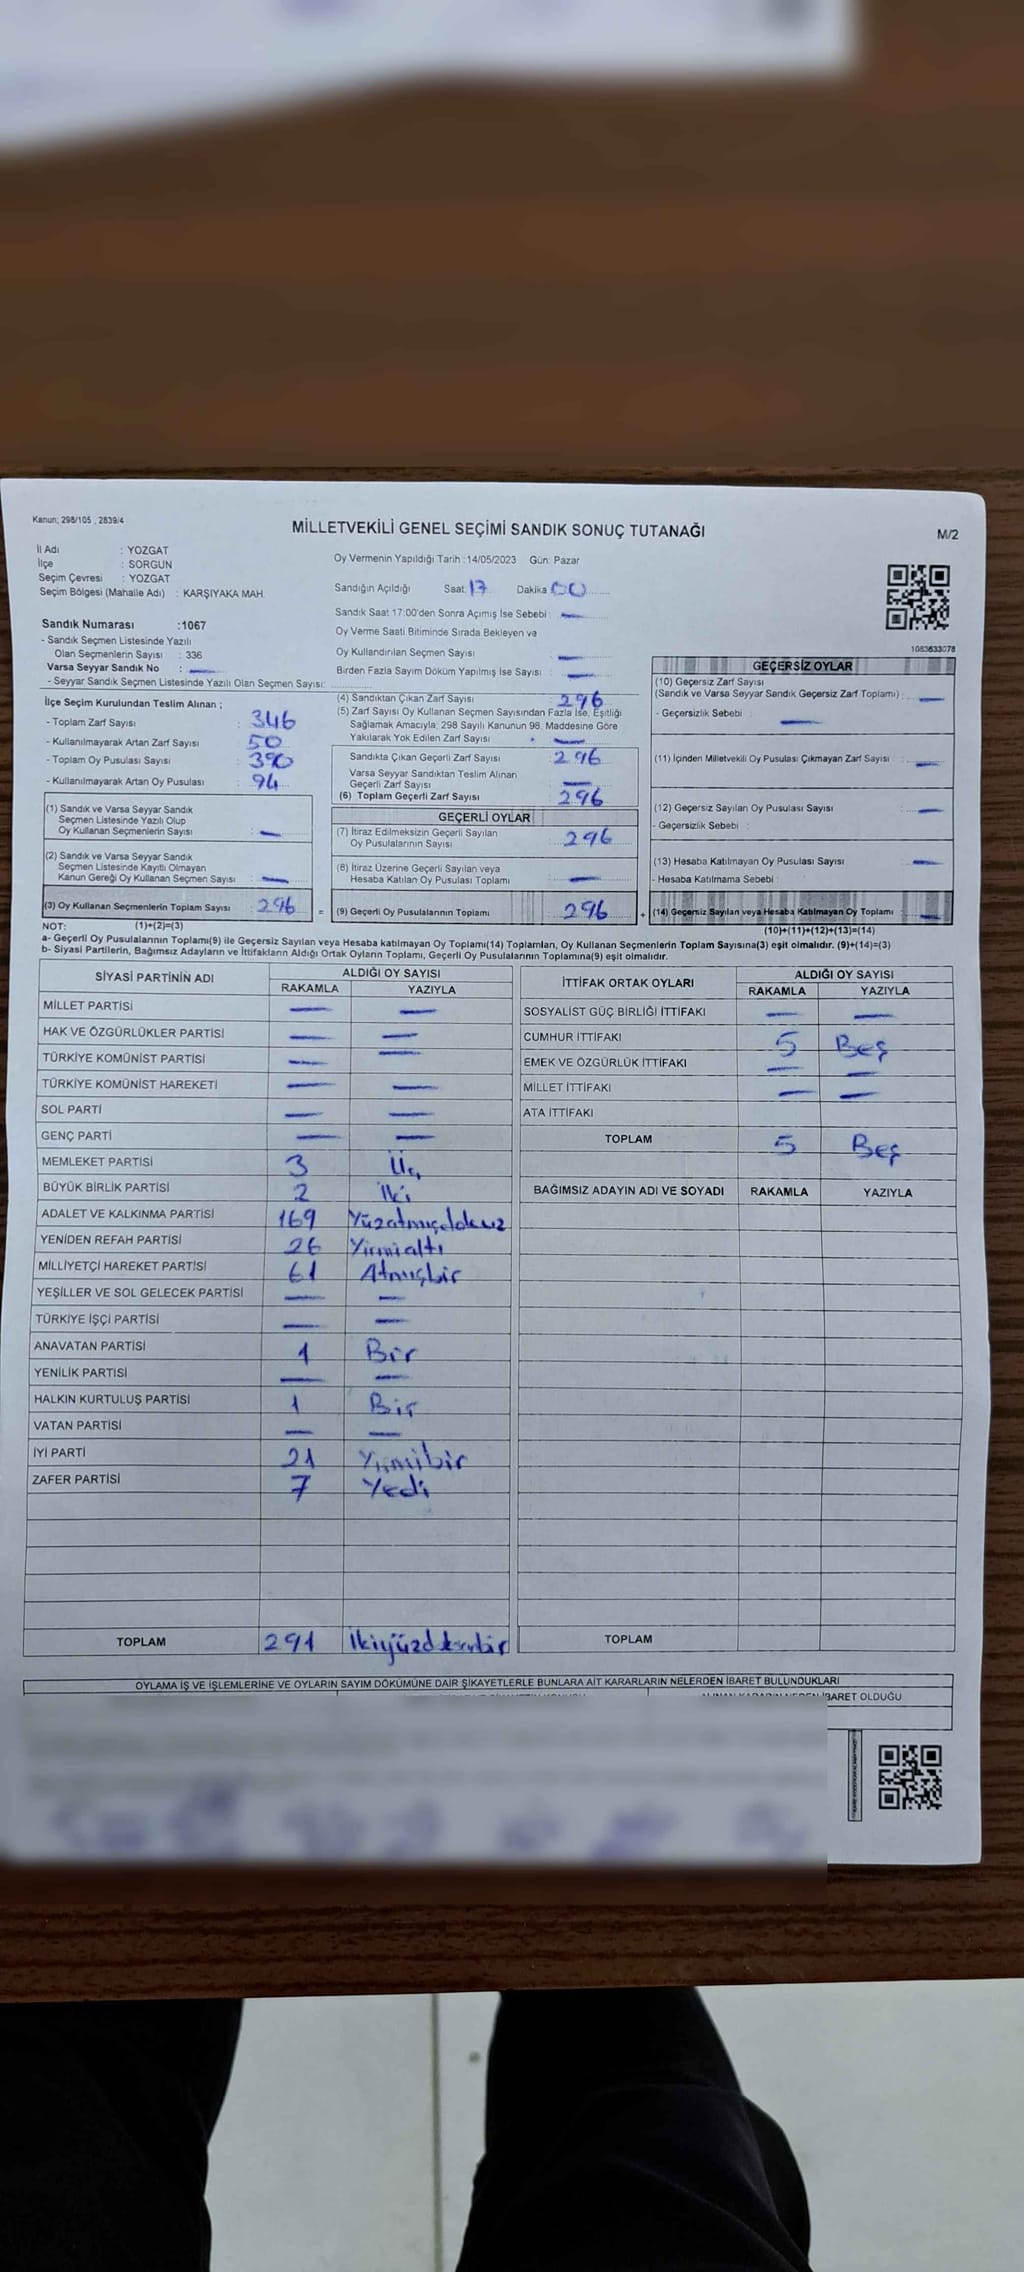 Kanun; 298/105 , 2839/4
MİLLETVEKİLİ GENEL SEÇİMİ SANDIK SONUÇ TUTANAĞI
M/2
İl Adı : YOZGAT
İlçe : SORGUN
Seçim Çevresi : YOZGAT
Seçim Bölgesi (Mahalle Adı) : KARŞIYAKA MAH.
Oy Vermenin Yapıldığı Tarih : 14/05/2023 Gün: Pazar
Sandığın Açıldığı Saat 17 Dakika 00
Sandık Saat 17:00'den Sonra Açımış İse Sebebi : —
Oy Verme Saati Bitiminde Sırada Bekleyen ve
Oy Kullandırılan Seçmen Sayısı : —
Birden Fazla Sayım Döküm Yapılmış İse Sayısı : —
Sandık Numarası :1067
- Sandık Seçmen Listesinde Yazılı
Olan Seçmenlerin Sayısı : 336
Varsa Seyyar Sandık No : —
- Seyyar Sandık Seçmen Listesinde Yazılı Olan Seçmen Sayısı:
1083633078
İlçe Seçim Kurulundan Teslim Alınan ;
- Toplam Zarf Sayısı : 346
- Kullanılmayarak Artan Zarf Sayısı : 50
- Toplam Oy Pusulası Sayısı : 390
- Kullanılmayarak Artan Oy Pusulası : 94
(1) Sandık ve Varsa Seyyar Sandık
Seçmen Listesinde Yazılı Olup
Oy Kullanan Seçmenlerin Sayısı : —
(2) Sandık ve Varsa Seyyar Sandık
Seçmen Listesinde Kayıtlı Olmayan
Kanun Gereği Oy Kullanan Seçmen Sayısı : —
(3) Oy Kullanan Seçmenlerin Toplam Sayısı : 296
(4) Sandıktan Çıkan Zarf Sayısı : 296
(5) Zarf Sayısı Oy Kullanan Seçmen Sayısından Fazla İse, Eşitliği
Sağlamak Amacıyla; 298 Sayılı Kanunun 98. Maddesine Göre
Yakılarak Yok Edilen Zarf Sayısı : —
Sandıkta Çıkan Geçerli Zarf Sayısı : 296
Varsa Seyyar Sandıktan Teslim Alınan
Geçerli Zarf Sayısı : —
(6) Toplam Geçerli Zarf Sayısı : 296
GEÇERLİ OYLAR
(7) İtiraz Edilmeksizin Geçerli Sayılan
Oy Pusulalarının Sayısı : 296
(8) İtiraz Üzerine Geçerli Sayılan veya
Hesaba Katılan Oy Pusulası Toplamı : —
= (9) Geçerli Oy Pusulalarının Toplamı : 296
GEÇERSİZ OYLAR
(10) Geçersiz Zarf Sayısı
(Sandık ve Varsa Seyyar Sandık Geçersiz Zarf Toplamı) : —
- Geçersizlik Sebebi : —
(11) İçinden Milletvekili Oy Pusulası Çıkmayan Zarf Sayısı : —
(12) Geçersiz Sayılan Oy Pusulası Sayısı : —
- Geçersizlik Sebebi :
(13) Hesaba Katılmayan Oy Pusulası Sayısı : —
- Hesaba Katılmama Sebebi :
+ (14) Geçersiz Sayılan veya Hesaba Katılmayan Oy Toplamı : —
NOT: (1)+(2)=(3)
(10)+(11)+(12)+(13)=(14)
a- Geçerli Oy Pusulalarının Toplamı(9) ile Geçersiz Sayılan veya Hesaba katılmayan Oy Toplamı(14) Toplamları, Oy Kullanan Seçmenlerin Toplam Sayısına(3) eşit olmalıdır. (9)+(14)=(3)
b- Siyasi Partilerin, Bağımsız Adayların ve İttifakların Aldığı Ortak Oyların Toplamı, Geçerli Oy Pusulalarının Toplamına(9) eşit olmalıdır.
SİYASİ PARTİNİN ADI ALDIĞI OY SAYISI
RAKAMLA YAZIYLA
MİLLET PARTİSİ — —
HAK VE ÖZGÜRLÜKLER PARTİSİ — —
TÜRKİYE KOMÜNİST PARTİSİ — —
TÜRKİYE KOMÜNİST HAREKETİ — —
SOL PARTİ — —
GENÇ PARTİ — —
MEMLEKET PARTİSİ 3 Üç
BÜYÜK BİRLİK PARTİSİ 2 İki
ADALET VE KALKINMA PARTİSİ 169 Yüzatmışdokuz
YENİDEN REFAH PARTİSİ 26 Yirmialtı
MİLLİYETÇİ HAREKET PARTİSİ 61 Atmışbir
YEŞİLLER VE SOL GELECEK PARTİSİ — —
TÜRKİYE İŞÇİ PARTİSİ — —
ANAVATAN PARTİSİ 1 Bir
YENİLİK PARTİSİ — —
HALKIN KURTULUŞ PARTİSİ 1 Bir
VATAN PARTİSİ — —
İYİ PARTİ 21 Yirmibir
ZAFER PARTİSİ 7 Yedi
TOPLAM 291 İkiyüzdoksanbir
İTTİFAK ORTAK OYLARI ALDIĞI OY SAYISI
RAKAMLA YAZIYLA
SOSYALİST GÜÇ BİRLİĞİ İTTİFAKI — —
CUMHUR İTTİFAKI 5 Beş
EMEK VE ÖZGÜRLÜK İTTİFAKI — —
MİLLET İTTİFAKI — —
ATA İTTİFAKI
TOPLAM 5 Beş
BAĞIMSIZ ADAYIN ADI VE SOYADI RAKAMLA YAZIYLA
TOPLAM
OYLAMA İŞ VE İŞLEMLERİNE VE OYLARIN SAYIM DÖKÜMÜNE DAİR ŞİKAYETLERLE BUNLARA AİT KARARLARIN NELERDEN İBARET BULUNDUKLARI
İBARET OLDUĞU